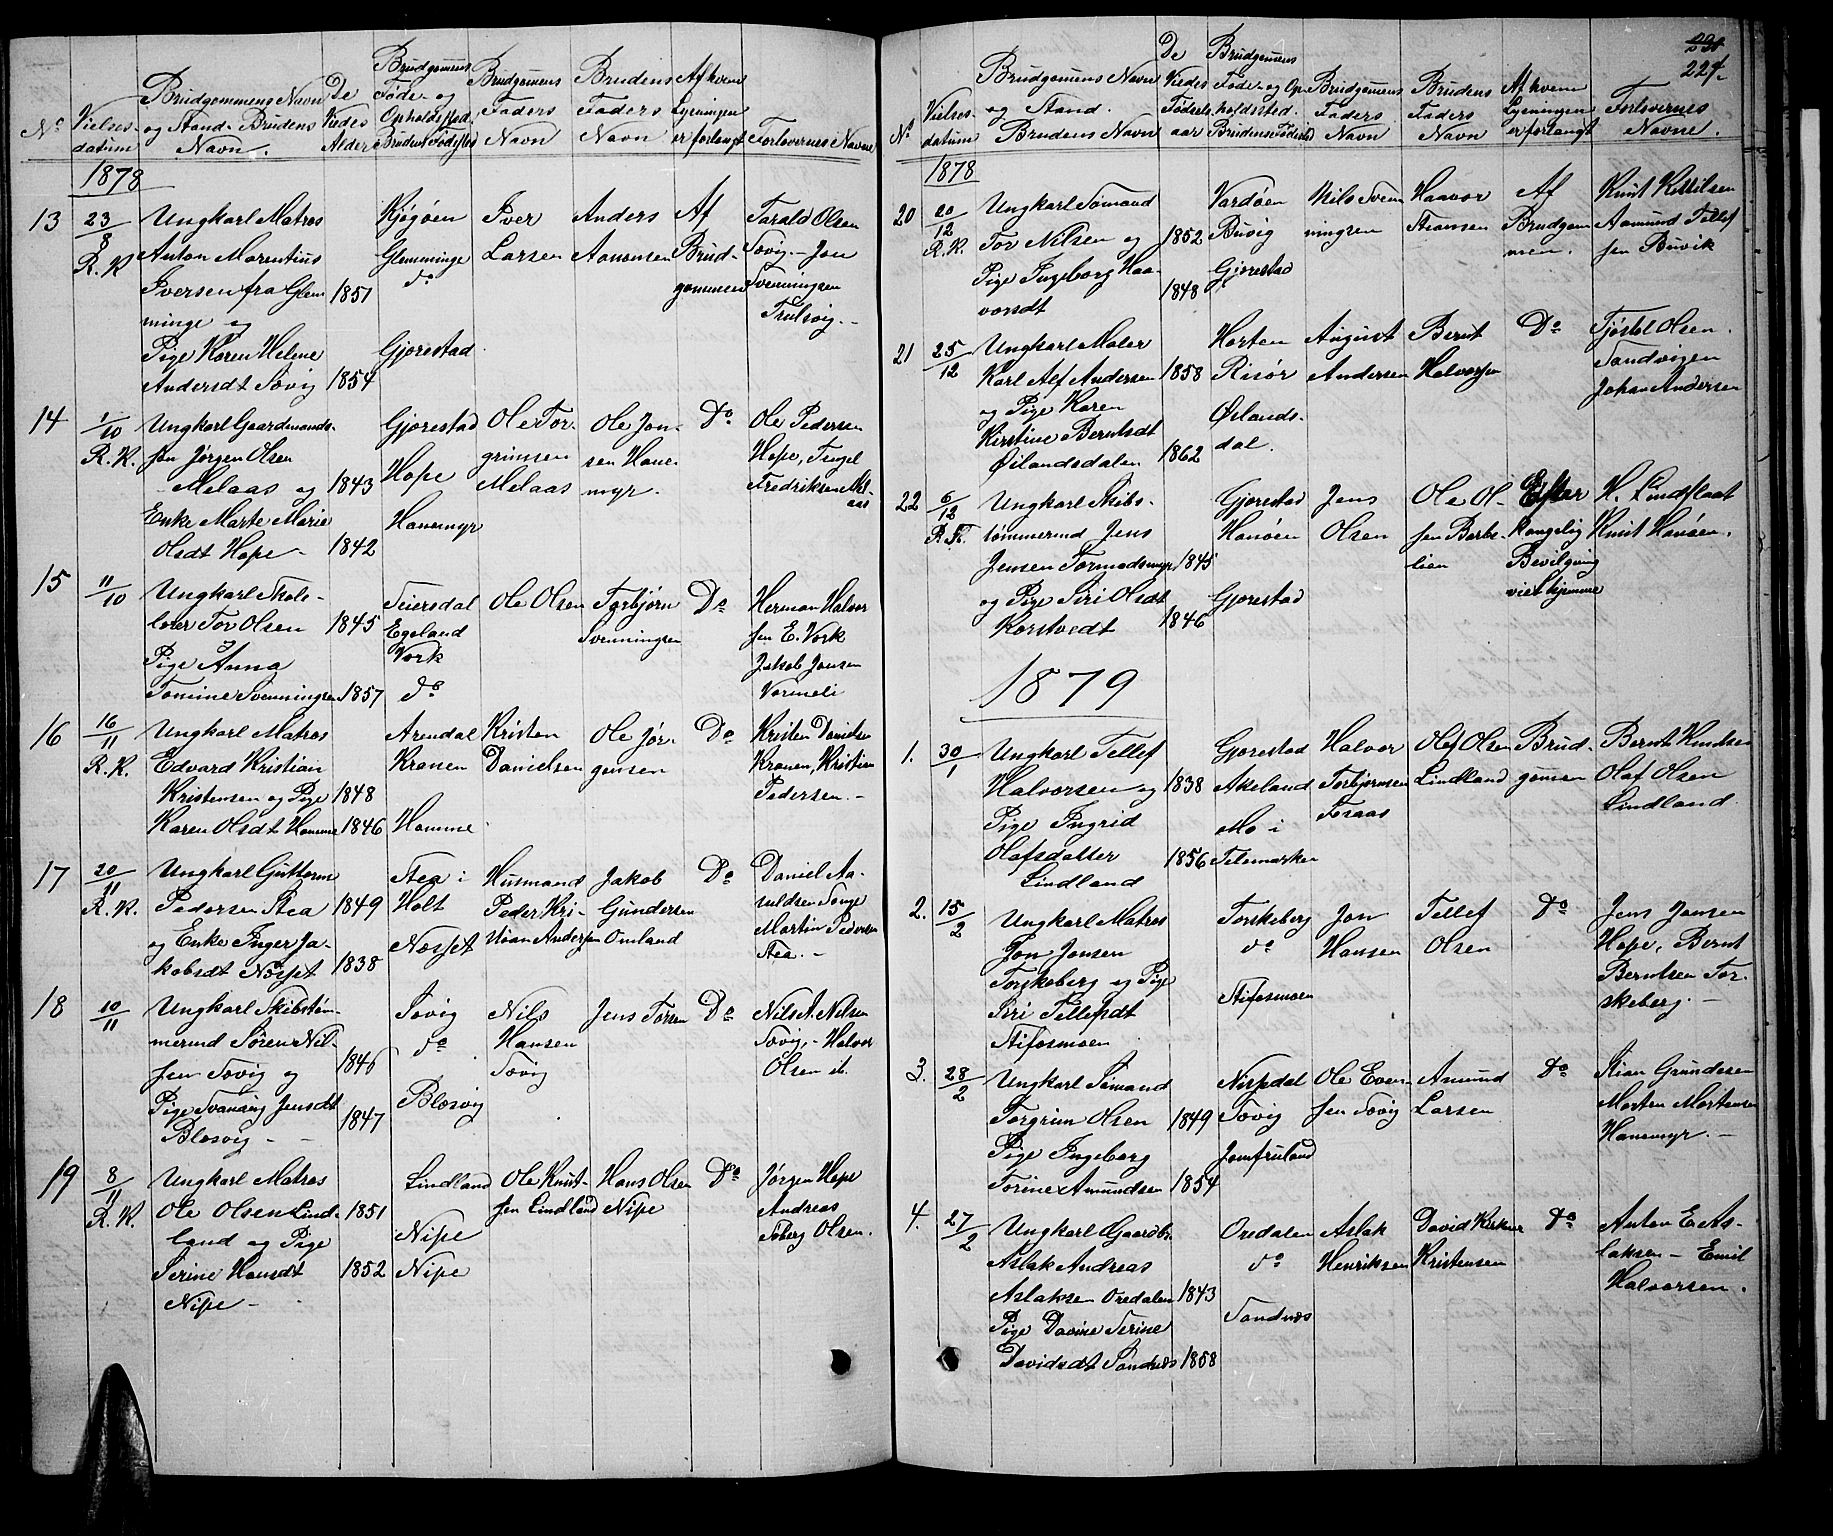 231
227
No
Vielses-
datum
Brudgommens Navn
og Stand. Brudens
Navn.
De
Viedes
Alder
Brudgommens
Føde- og
Opholdssted.
Brudens Fødested
Brudgommens
Faders
Navn
Brudens
Faders
Navn
Af hvem
Lysningen
er forlangt
Forlovernes Navne
1878
13
23/8
R. K.
Ungkarl Matros
Anton Marentius
Iversen fra Glem
minge og
Pige Karen Helene
Andersdt Søvig
1851
1854
Kjøgøen
Glemminge
do
Gjerestad
Iver
Larsen
Anders
Aanonsen
Af
Brud-
gommen
Tarald Olsen
Søvig - Jon
Svenningsen
Trulsvig.-
14
1/10
R. K.
Ungkarl Gaardmands-
søn Jørgen Olsen
Melaas og
Enke Marte Marie
Olsdt Hope -
1843
1842
Gjerestad
Hope
Hanemyr
Ole Tor-
grimsen
Melaas
Ole Jon-
sen Hane-
myr.
Do
Ole Pedersen
Hope,
Fredriksen Mel-
aas
15
11/10
Ungkarl Skole-
lærer Tor Olsen
Pige Anna
Tomine Svenningsen
1845
1857
Seiersdal
Egeland
Vork
do
Ole Olsen
Torbjørn
Svenningsen
Do
Herman Halvor
sen E. Vork
Jakob Jonsen
Varmeli
16
16/11
R. K.
Ungkarl Matros
Edvard Kristian
Kristensen og Pige
Karen Olsdt Hamme
1848
1846
Arendal
Kranen
Hamme
Kristen
Danielsen
Ole Jør-
gensen
Do
Kristen Danielsen
Kranen, Kristian
Pedersen.-
17
20/11
R. K.
Ungkarl Guttorm
Pedersen Stea
og Enke Inger Ja-
kobsdt Næsset
1849
1838
Stea i
Holt
Næsset
Husmand
Peder Kri-
stian Andersen
Jakob
Gundersen
Omland
Do
Daniel Aa-
suldsen Songe
Martin Pedersen
Stea.-
18
10/11
Ungkarl Skibstøm-
mermd Søren Nil-
sen Søvig og
Pige Svanaug Jensdt
Blesvig -
1846
1847
Søvig
do
Blesvig
Nils
Hansen
Søvig
Jens Torsen
Do
Nils A. Nilsen
Søvig, - Halvor
Olsen ib.
19
8/11
R. K.
Ungkarl Matros
Ole Olsen Lind-
land og Pige
Serine Hansdt
Nipe -
1851
1852
Lindland
Nipe
Nipe
Ole Knut-
sen Lindland
Hans Olsen
Nipe
Do
Jørgen Hope
Andreas
Olsen.
No
Vielses-
datum
Brudgomens Navn
og Stand.
Brudens Navn
De
Viedes
Fødsels
aar
Brudgomens
Føde- og Op-
holdssted.
Brudens Fødested
Brudgomens
Faders
Navn
Brudens
Faders
Navn
Af hvem
Lysningen
er forlangt
Forlovernes
Navne.
1878
20
20/12
R. K.
Ungkarl Sømand
Tor Nilsen og
Pige Ingeborg Haa-
vorsdt
1852
1848
Vardøen
Buvig
Gjerestad
Nils Sven
ningsen
Haavor
Steansen
Af
Brudgom
men.
Knut Kittilsen
Aamund Tellef
sen Buvik
21
25/12
Ungkarl Maler
Karl Alf Andersen
og Pige Karen
Kirstine Berntsdt
Øilandsdalen
1858
1862
Horten
Risør
Øilands-
dal.
August
Andersen
Bernt
Halvorsen
Do
Tjøstel Olsen
Sandvigen
Johan Andersen
22
6/12
R. K.
Ungkarl Skibs-
tømmermd Jens
Jensen Tormodsmyr
og Pige Siri Olsdt
Korstvedt
1845
1846
Gjerestad
Hanøen
Gjerestad
Jens
Olsen
Ole Ol-
sen Berbe-
lien
Efter
Kongelig
Bevilgning
viet hjemme
H. Lindstaat
Knut Hanøen.
1879
1.
30/1
Ungkarl Tellef
Halvorsen og
Pige Ingrid
Olafsdatter
Lindland
1838
1856
Gjerestad
Akeland
Mo i
Telemarken
Halvor
Torbjørnsen
Fosaas
Olaf Olsen
Lindland
Brud-
gomen
Bernt Knudsen
Olaf Olsen
Lindland
2.
15/2
Ungkarl Matros
Jon Jonsen
Torskeberg og Pige
Siri Tellefsdt
Stifosmoen
Torskeberg
do
Stifosmoen
Jon
Hansen
Tellef
Olsen
Do
Jens Jansen
Hope, Bernt
Berntsen Tor-
skeberg.-
3.
28/2
Ungkarl Sømand
Torgrim Olsen
Pige Ingeborg
Torine Amundsen
1849
1854
Nissedal
Søvig
Jomfruland
Ole Even-
sen Søvig
Amund
Larsen
Do
Stian Gundersen
Morten Mortensen
Hanemyr.-
4.
27/2
Ungkarl Gaardbr.
Aslak Andreas
Aslaksen Oredalen
Pige Davine Serine
Davidsdt Sandnes
1843
1858
Oredalen
do
Sandnes
Aslak
Henriksen
David
Kristensen
Do
Anton E. As-
laksen - Emil
Halvorsen.